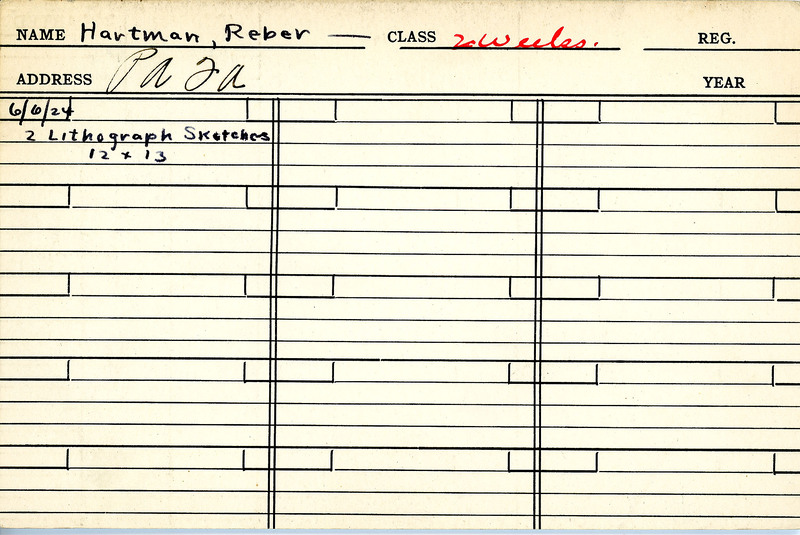 NAME Hartman, Reber — CLASS 2 Weeks. REG.
ADDRESS PAFA YEAR
6/6/24
2 Lithograph Sketches
12 x 13